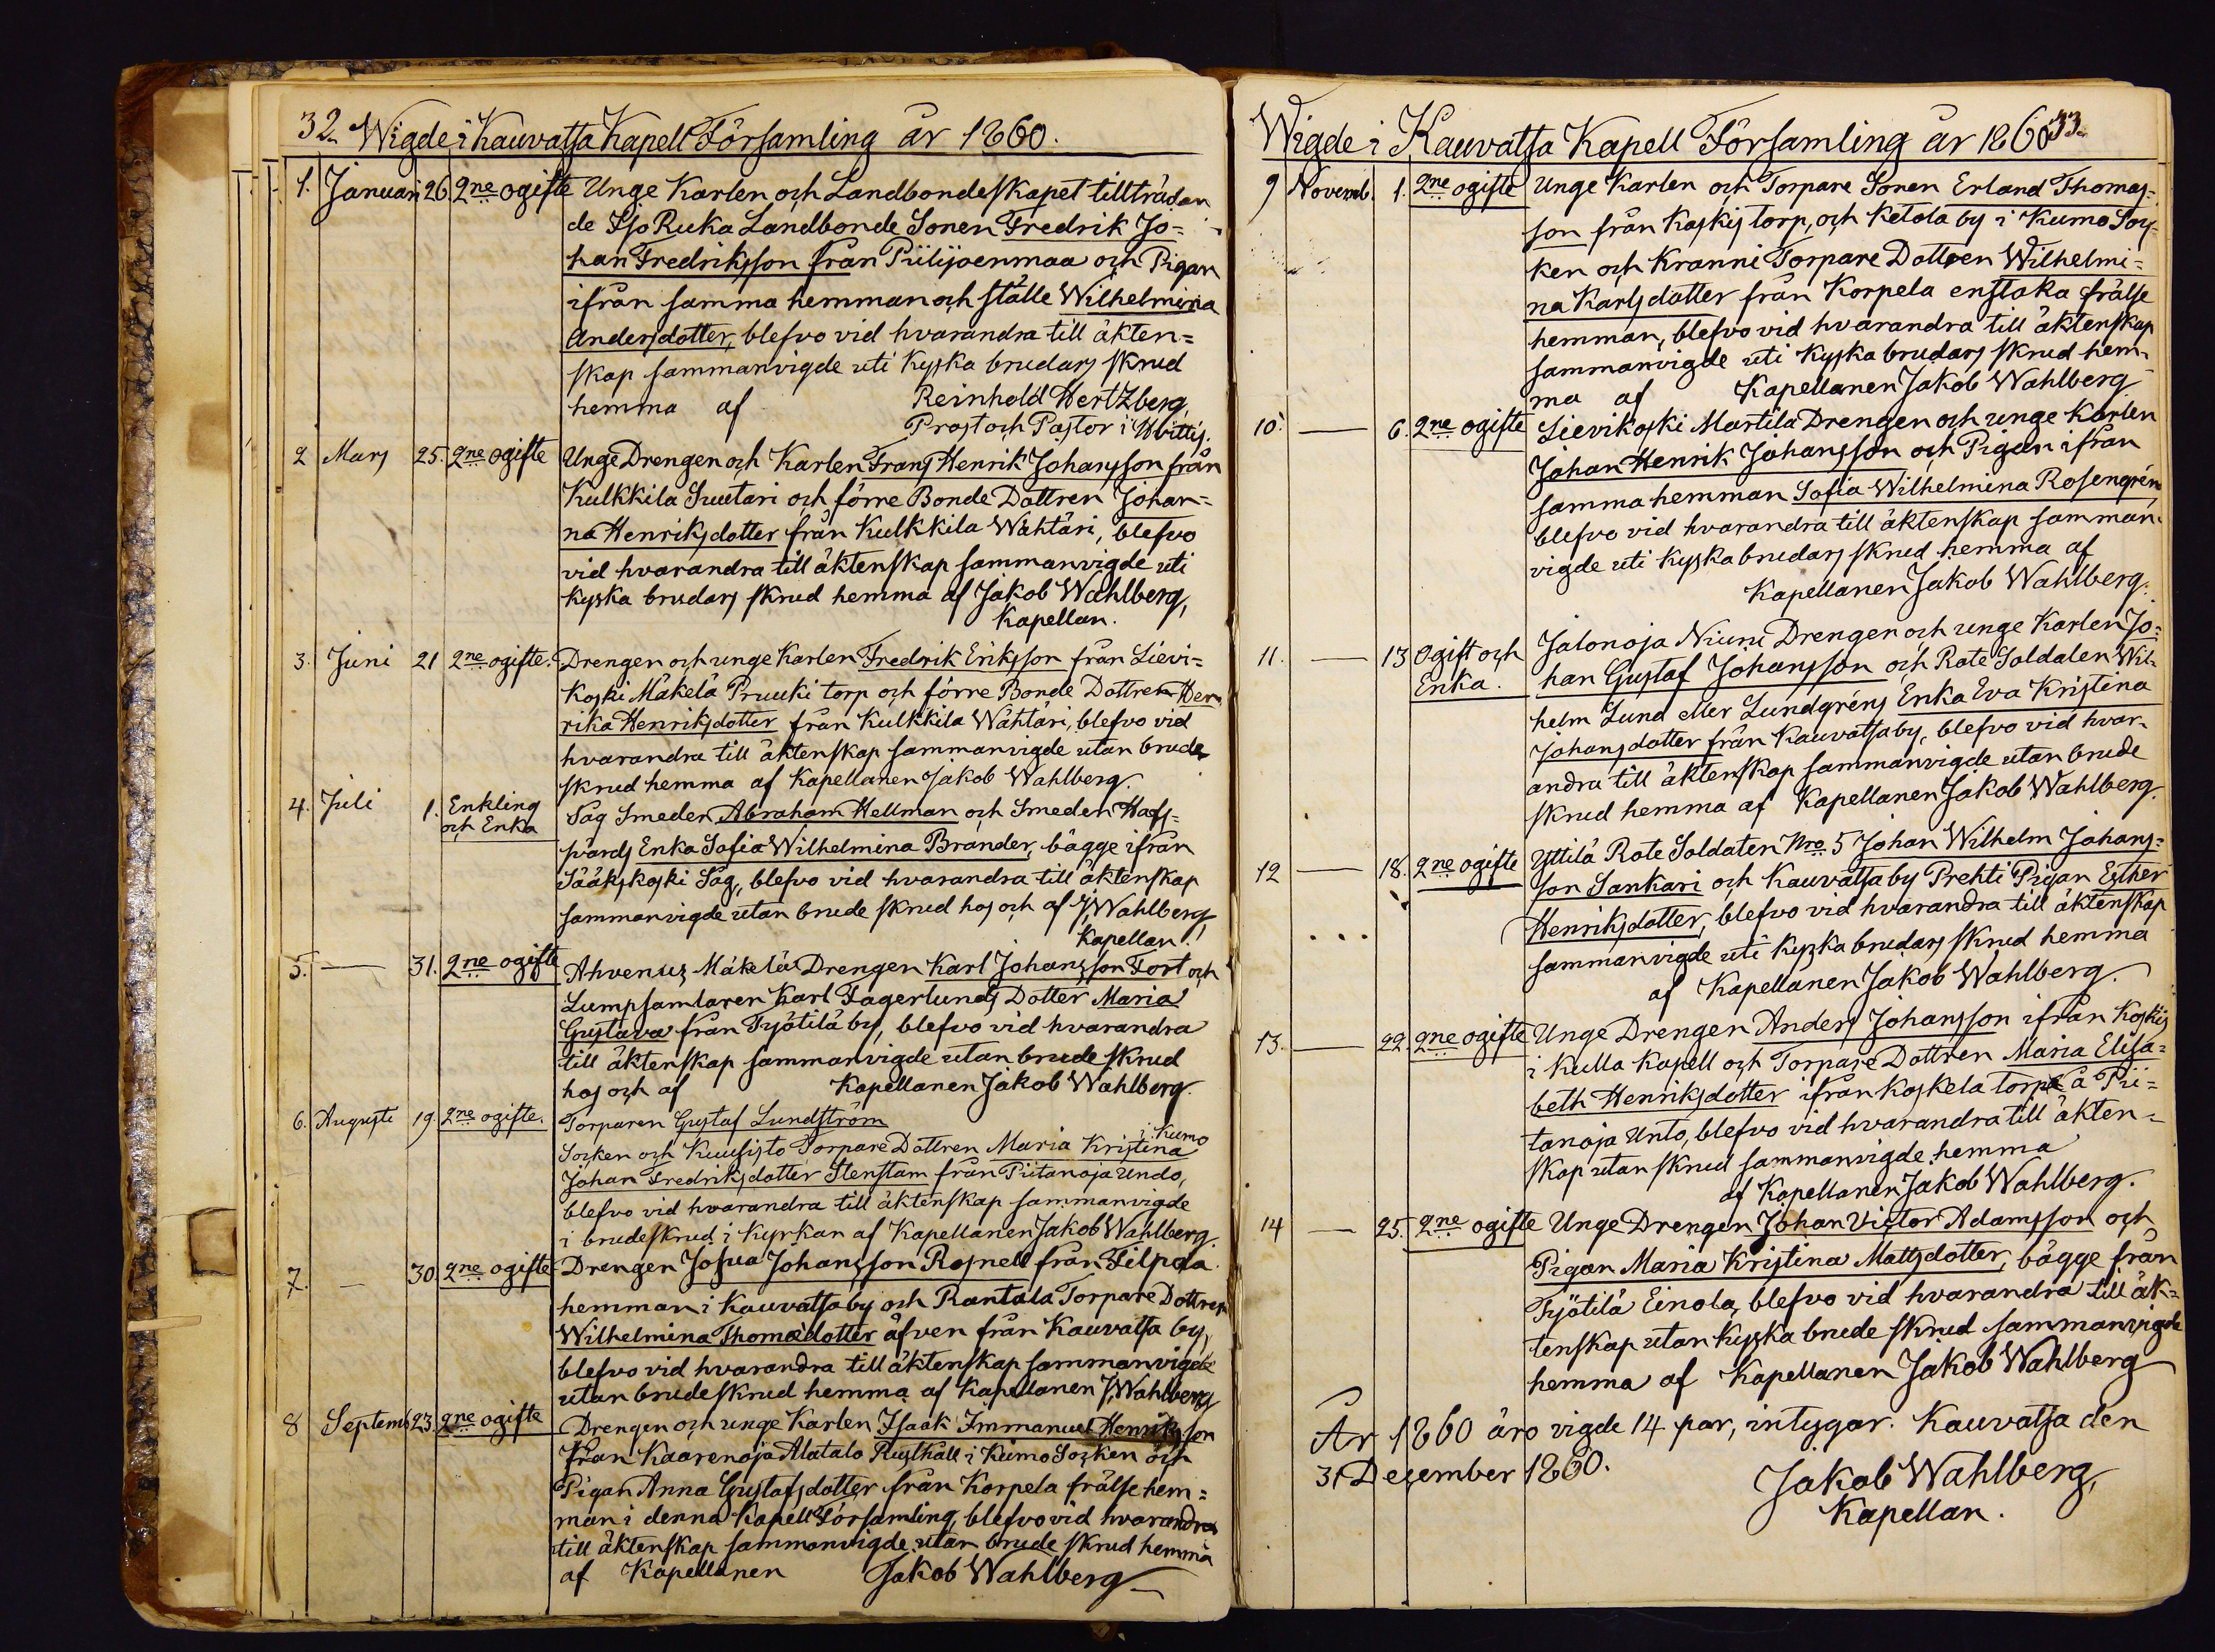 32. Wigde i Kauvatsa Kapell Församling år 1860.
1. Januari 26. 2ne ogifte Unge Karlen och Landbondeskapet tillträdan
de Iso Ruka Landbonde Sonen Fredrik Jo=
han Fredriksson från Piilijoenmaa och Pigan
ifrån samma hemman och ställe Wilhelmina
Andersdotter, blefvo vid hvarandra till äkten=
skap sammanvigde uti kyska brudars skrud
hemma af Reinhold Hertzberg,
Prost och Pastor i Hvittis.
2 Mars 25. 2ne ogifte Unge Drengen och Karlen Frans Henrik Johansson från
Kulkkila Suutari och förre Bonde Dottren Johan=
na Henriksdotter från Kulkkila Wähtäri, blefvo
vid hvarandra till äktenskap sammanvigde uti
kyska brudars skrud hemma af Jakob Wahlberg,
Kapellan.
3. Juni 21 2ne ogifte. Drengen och unge Karlen Fredrik Eriksson från Lievi=
koski Mäkelä Pruuki torp och förre Bonde Dottren Hen
rika Henriksdotter från Kulkkila Wähtäri, blefvo vid
hvarandra till äktenskap sammanvigde utan brude
skrud hemma af Kapellanen Jakob Wahlberg.
4. Juli 1. Enkling Såg Smeden Abraham Hellman och Smeden Hafs=
och Enka pärds Enka Sofia Wilhelmina Brander, bägge ifrån
Sääkskoski Såg, blefvo vid hvarandra till äktenskap
sammanvigde utan brude skrud hos och af J. Wahlberg,
Kapellan.
5. — 31. 2ne ogifte Ahvenus Mäkelä Drengen Karl Johansson Fort och
Lumpsamlaren Karl Fagerlunds Dotter Maria
Gustava från Työtilä by, blefvo vid hvarandra
till äktenskap sammanvigde utan brude skrud
hos och af Kapellanen Jakob Wahlberg.
6. Auguste 19. 2ne ogifte. Torparen Gustaf Lundström
i Kumo
Socken och Kuusisto Torpare Dottren Maria Kristina
Johan Fredriksdotter Stenstam från Piitanoja Undo,
blefvo vid hvarandra till äktenskap sammanvigde
i brudeskrud i kyrkan af Kapellanen Jakob Wahlberg.
7. — 30. 2ne ogifte Drengen Josua Johansson Rosnell från Filpola
hemman i Kauvatsa by och Rantala Torpare Dottren
Wilhelmina Thomædotter äfven från Kauvatsa by,
blefvo vid hvarandra till äktenskap sammanvigde
utan brudeskrud hemma af Kapellanen J. Wahlberg
8 Septemb 23. 2ne ogifte Drengen och unge Karlen Isaak Immanuel Henriksson
från Kaarenoja Alatalo Rusthåll i Kumo Socken och
Pigan Anna Gustafsdotter från Korpela frälse hem=
man i denna Kapell Församling, blefvo vid hvarandra
till äktenskap sammanvigde utan brude skrud hemma
af Kapellanen Jakob Wahlberg
Wigde i Kauvatsa Kapell Församling år 1860 33.
9 Novemb. 1. 2ne ogifte Unge Karlen och Torpare Sonen Erland Thomas=
son från Koskis torp, och Ketola by i Kumo Soc=
ken och Kranni Torpare Dottren Wilhelmi=
na Karlsdotter från Korpela enstaka frälse
hemman, blefvo vid hvarandra till äktenskap
sammanvigde uti kyska brudars skrud hem=
ma af Kapellanen Jakob Wahlberg
10. — 6. 2ne ogifte Lievikoski Martila Drengen och unge Karlen
Johan Henrik Johansson och Pigan ifrån
samma hemman Sofia Wilhelmina Rosengrén,
blefvo vid hvarandra till äktenskap samman=
vigde uti kyska brudars skrud hemma af
Kapellanen Jakob Wahlberg.
11. — 13 Ogift och Jalonoja Niuni Drengen och unge Karlen Jo=
Enka. han Gustaf Johansson och Rote Soldaten Wil=
helm Lund eller Lundgréns Enka Eva Kristina
Johansdotter från Kauvatsa by, blefvo vid hvar=
andra till äktenskap sammanvigde utan brude
skrud hemma af Kapellanen Jakob Wahlberg.
12 — 18. 2ne ogifte Yttilä Rote Soldaten Nro 5 Johan Wilhelm Johans=
son Sankari och Kauvatsa by Prehti Pigan Esther
Henriksdotter, blefvo vid hvarandra till äktenskap
sammanvigde uti kyska brudars skrud hemma
af Kapellanen Jakob Wahlberg.
13. — 22. 2ne ogifte Unge Drengen Anders Johansson ifrån Koskis
i Kulla Kapell och Torpare Dottren Maria Elisa=
beth Henriksdotter ifrån Koskela torp å Pii=
tanoja Unto, blefvo vid hvarandra till äkten=
skap utan skrud sammanvigde hemma
af Kapellanen Jakob Wahlberg.
14 — 25. 2ne ogifte Unge Drengen Johan Victor Adamsson och
Pigan Maria Kristina Mattsdotter, bägge från
Työtilä Einola, blefvo vid hvarandra till äk=
tenskap utan kyska brude skrud sammanvigde
hemma af Kapellanen Jakob Wahlberg
År 1860 äro vigde 14 par, intygar. Kauvatsa den
31 December 1860.
Jakob Wahlberg,
Kapellan.